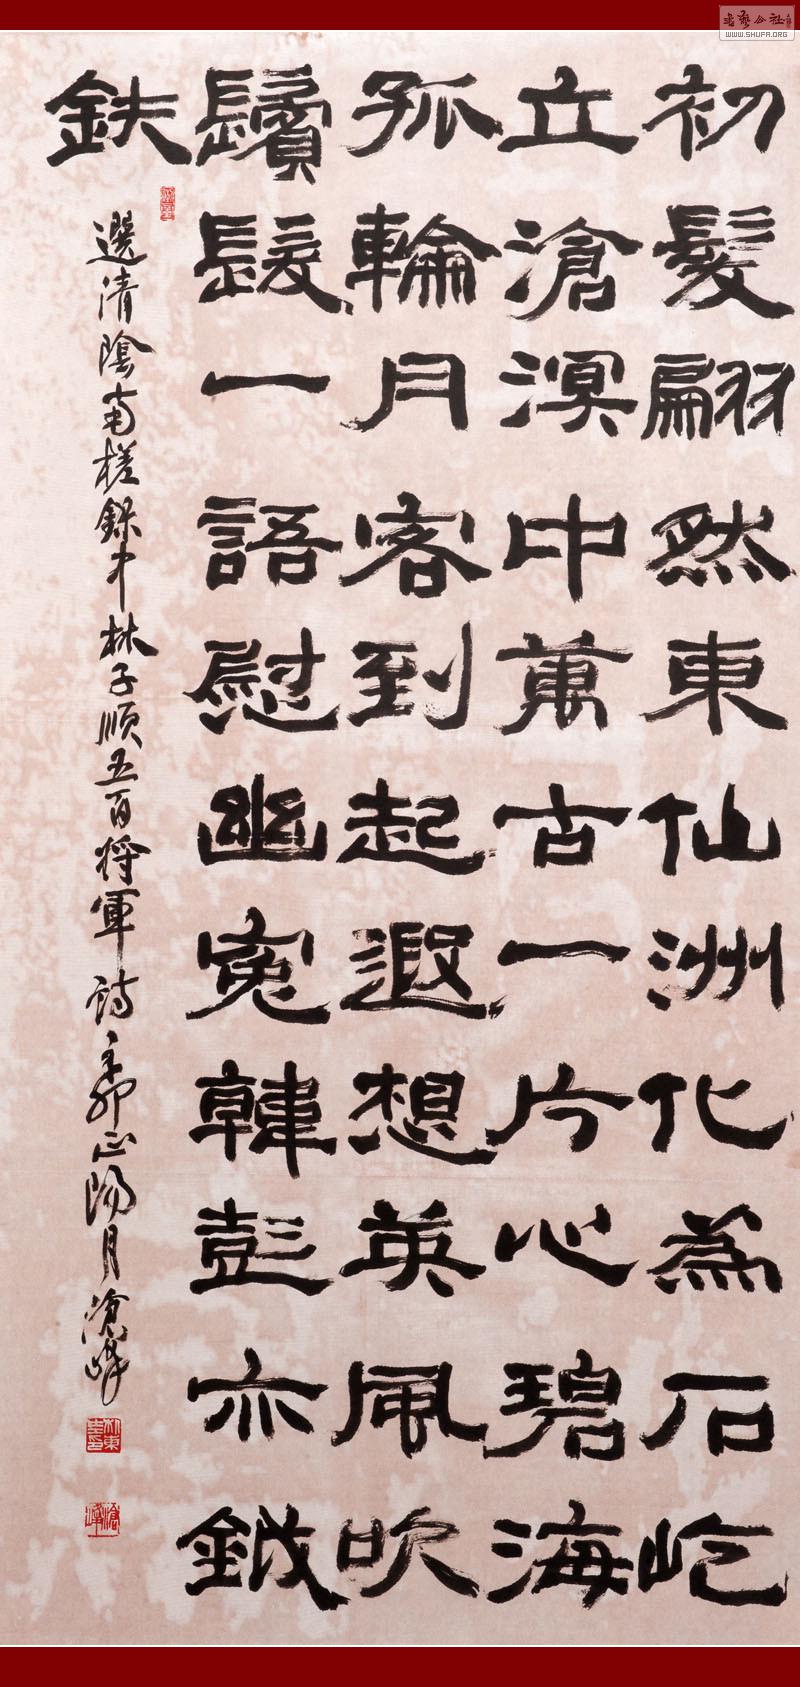 初髮翩然東仙洲化為石屹
立滄溟中萬古一片心碧海
孤輪月客到起遐想英風吹
鬢髮一語慰幽冤韓彭亦鉞
鈇
選清陰南槎錄中林子順五百將軍詩辛卯正陽月滄峰
朴東
滄峰
書藝公社
WWW.SHUFA.ORG